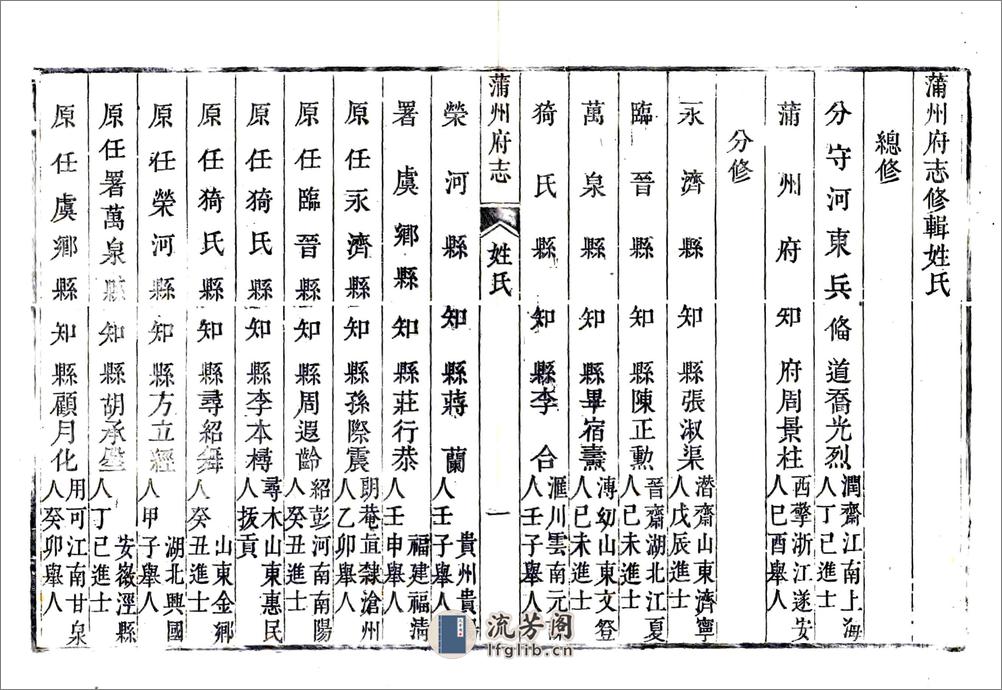 蒲州府志修輯姓氏
總修
分守河東兵備道喬光烈 潤齋江南上海人丁巳進士
蒲州府知府周景柱 西擎浙江遂安人己酉舉人
分修
永濟縣知縣張淑渠 潜齋山東濟寧人戊辰進士
臨晉縣知縣陳正勲 晉齋湖北江夏人己未進士
萬泉縣知縣畢宿燾 溥幼山東文登人己未進士
猗氏縣知縣李合 滙川雲南元人壬子舉人
蒲州府志 姓氏 一
榮河縣知縣蔣蘭 貴州貴人壬子舉人
署虞鄉縣知縣莊行恭 福建福清人壬申舉人
原任永濟縣知縣孫際震 閬菴直隸滄州人乙卯舉人
原任臨晉縣知縣周遐齡 紹彭河南南陽人癸丑進士
原任猗氏縣知縣李本樽 尋木山東惠民人拔貢
原任猗氏縣知縣尋紹舞 山東金鄉人癸丑進士
原任榮河縣知縣方立經 湖北興國人甲子舉人
原任署萬泉縣知縣胡承壂 安徽涇縣人丁巳進士
原任虞鄉縣知縣顧月化 用可江南甘泉人癸卯舉人
流芳阁
lfglib.cn